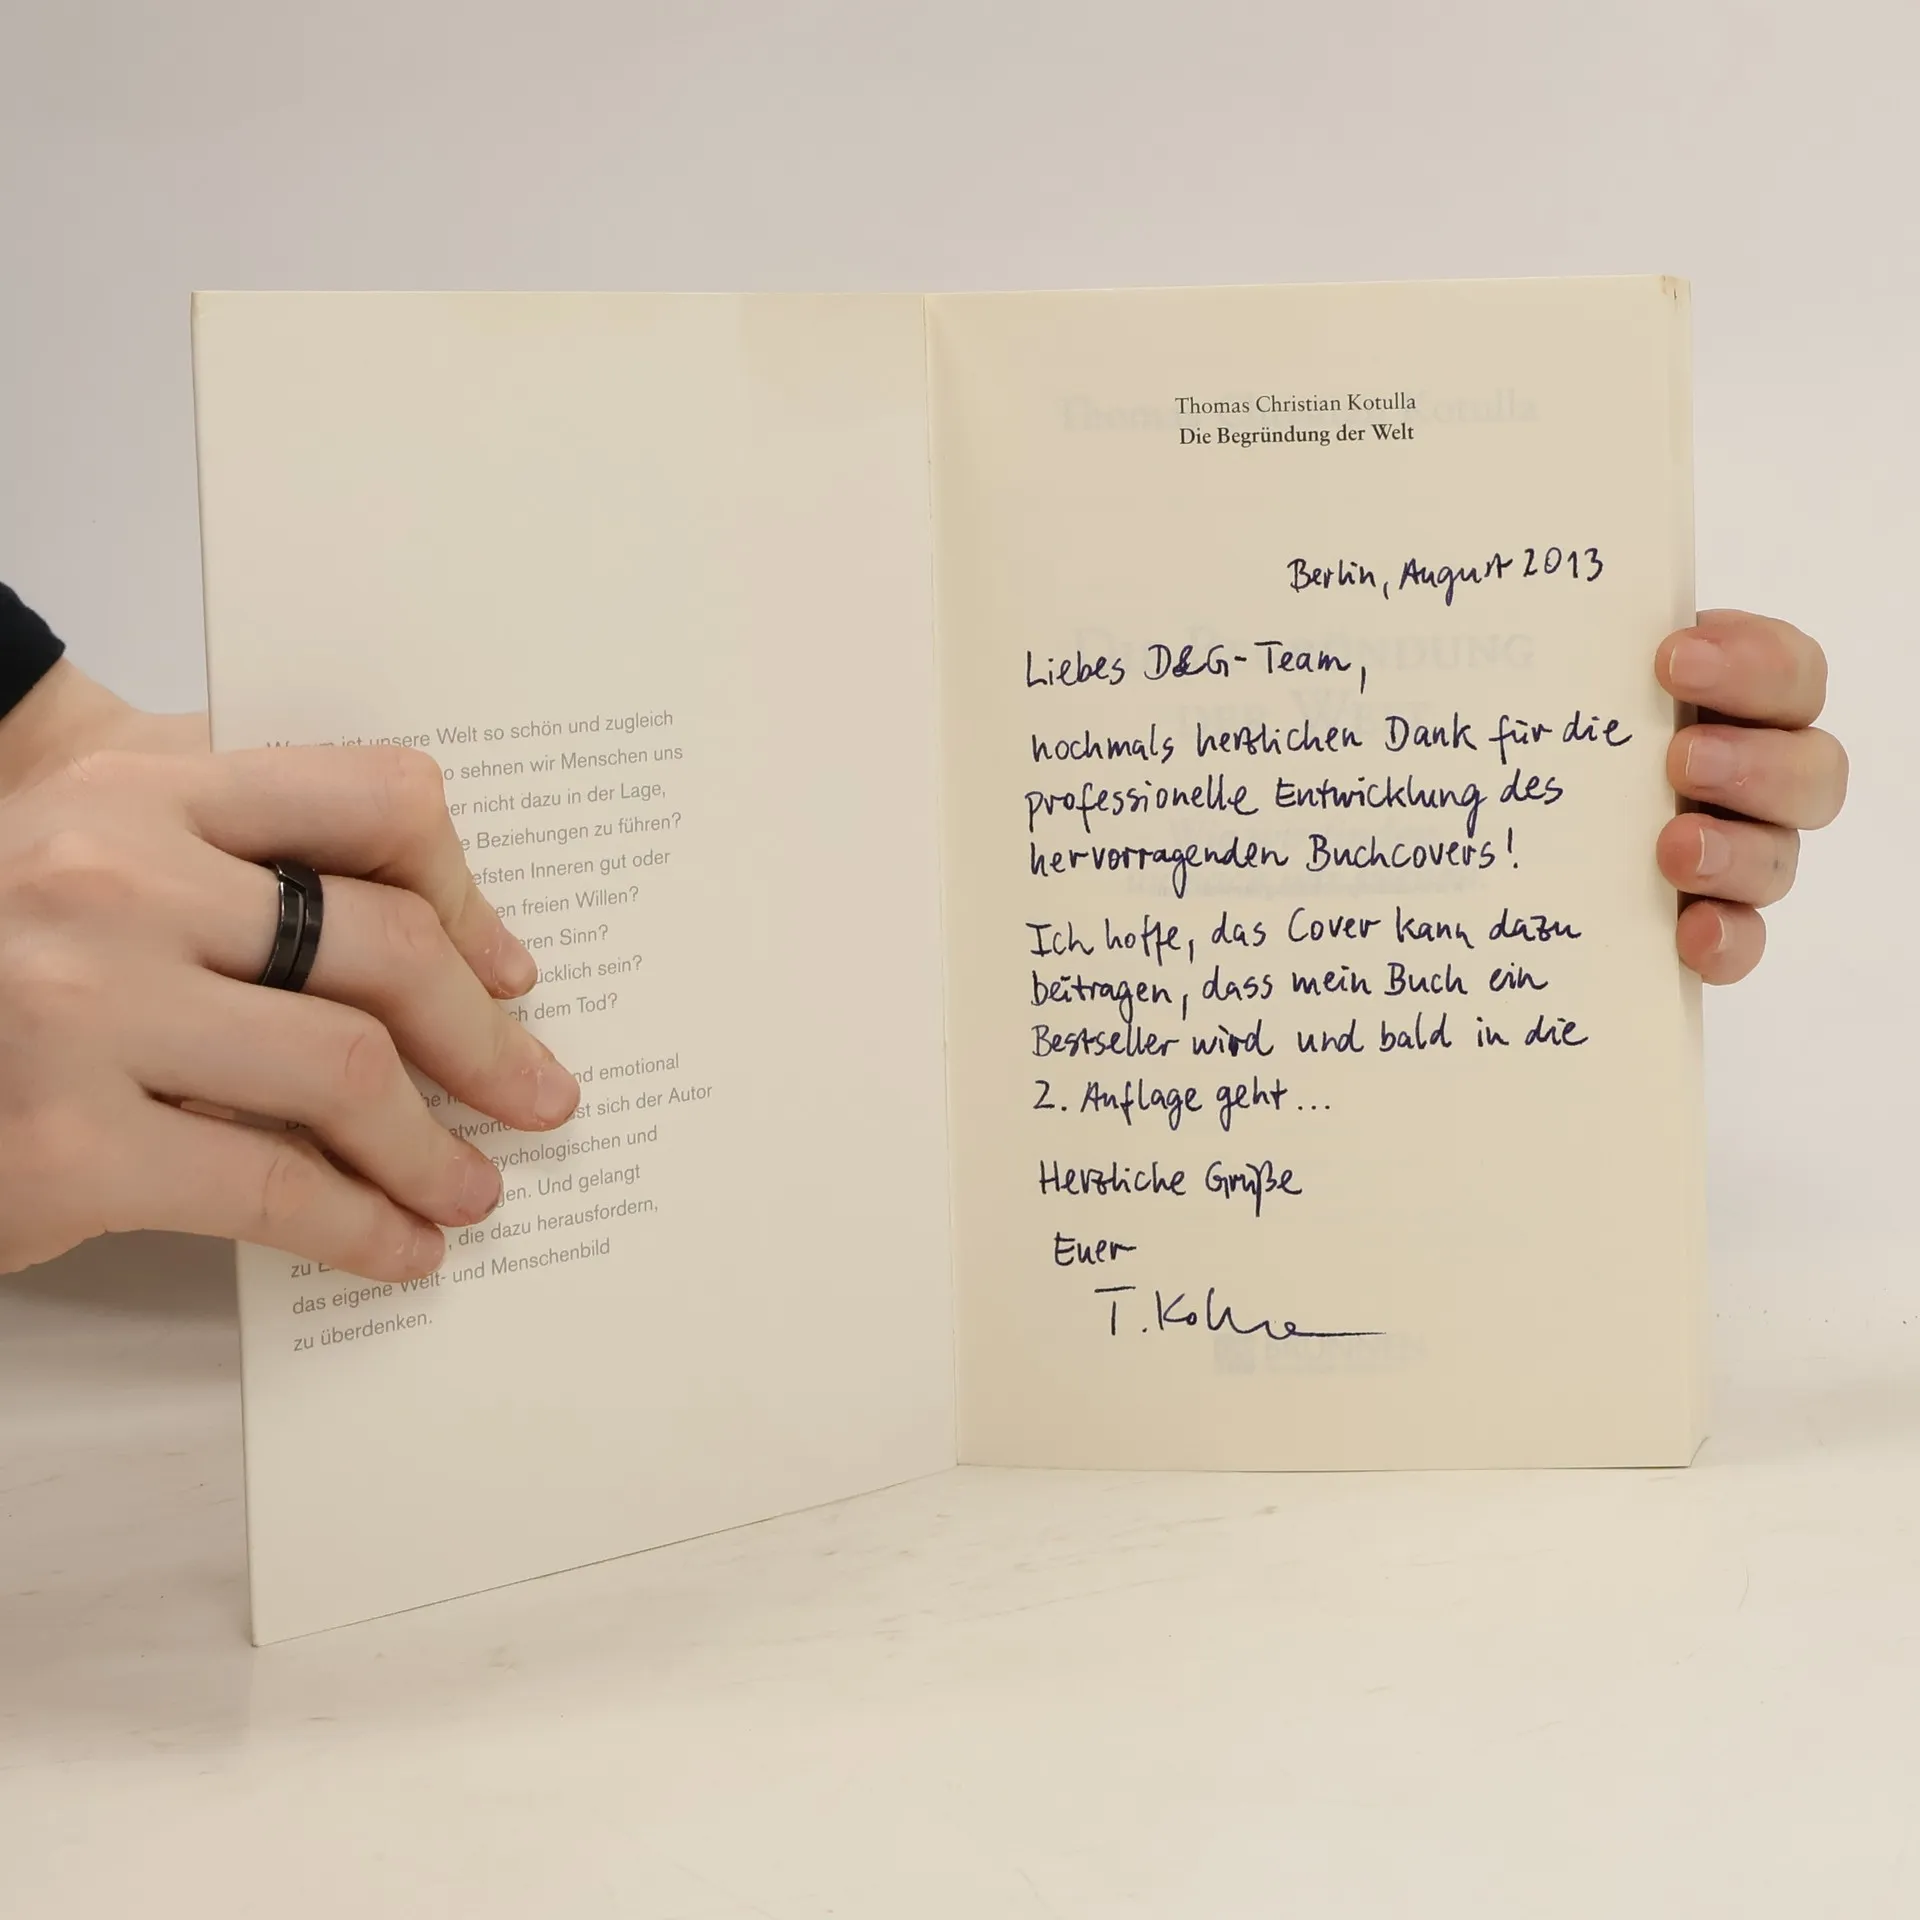 ist unsere Welt so schön und zugleich
o sehnen wir Menschen uns
er nicht dazu in der Lage,
e Beziehungen zu führen?
efsten Inneren gut oder
en freien Willen?
eren Sinn?
ücklich sein?
ch dem Tod?
nd emotional
st sich der Autor
sychologischen und
gen. Und gelangt
, die dazu herausfordern,
zu
das eigene Welt- und Menschenbild
zu überdenken.
Thomas Christian Kotulla
Die Begründung der Welt
Berlin, August 2013
Liebes D&G-Team,
nochmals herzlichen Dank für die
professionelle Entwicklung des
hervorragenden Buchcovers!
Ich hoffe, das Cover kann dazu
beitragen, dass mein Buch ein
Bestseller wird und bald in die
2. Auflage geht...
Herzliche Grüße
Euer
T. Kotulla